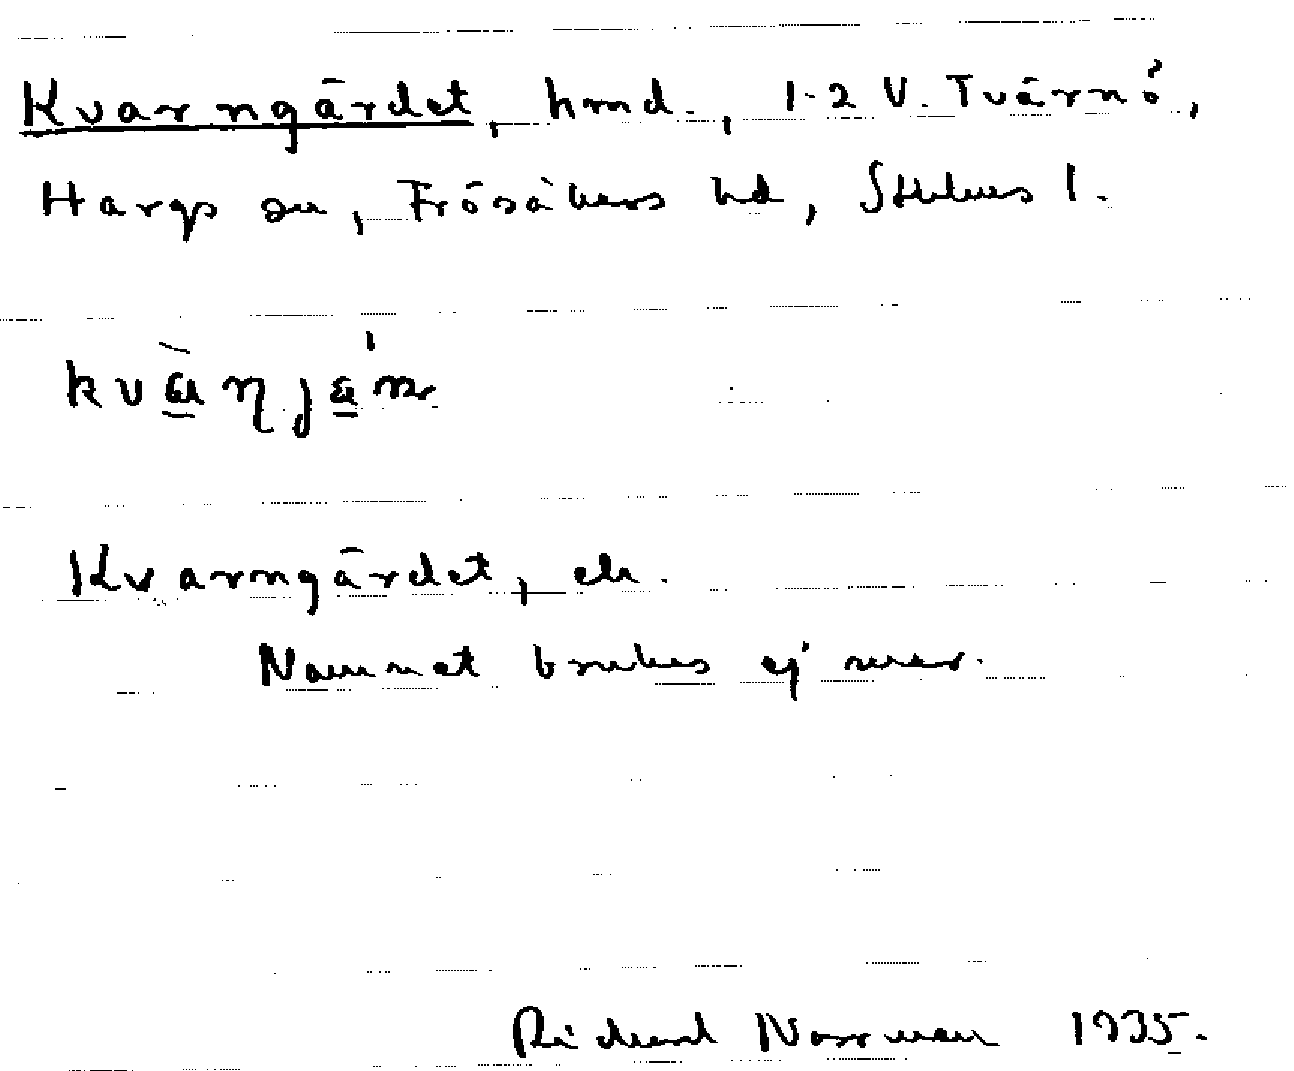 Kvarngärdet, hmd., 1-2 V. Tvärnö,
Hargs sn, Frösåkers hd, Sthlms l.
Kvarngärdet, ek.
Namnet brukas ej mer.
Richard Norrman 1935.